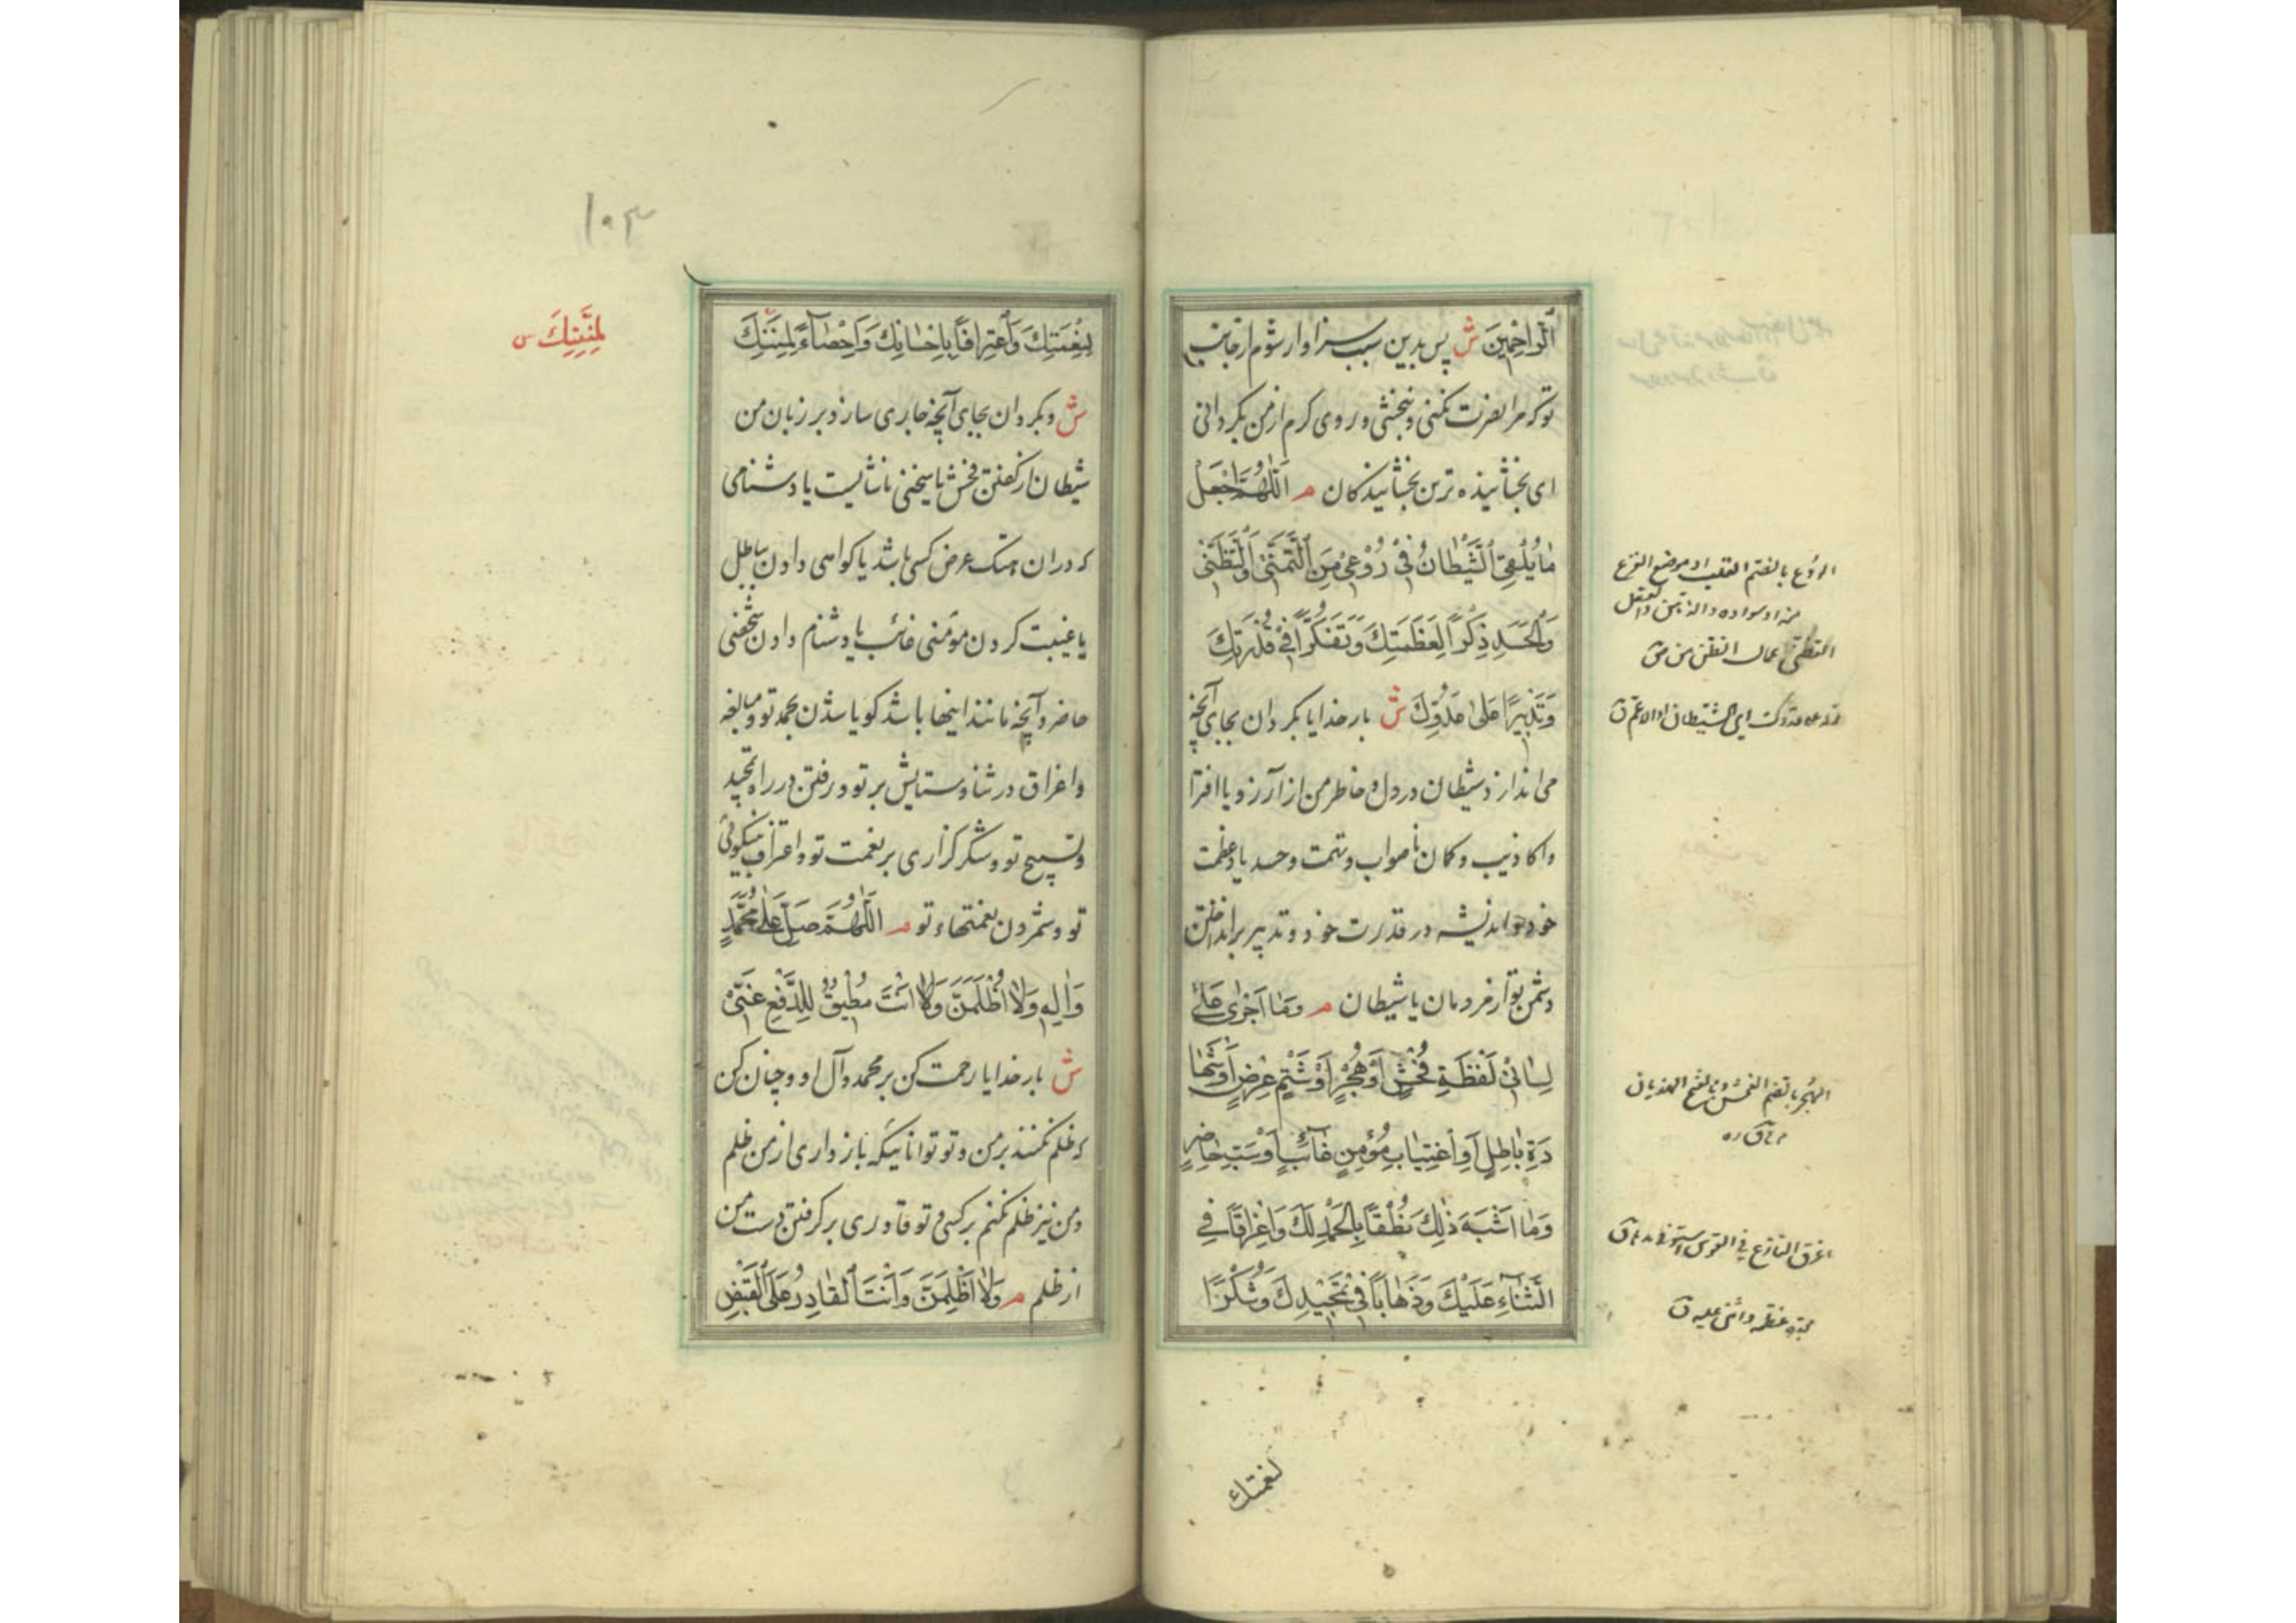 اَلرّاحِمينَ ش پس بدین سبب سزاوار شوم از جانب
تو که مرا نصرت نکنی و نبخشی و روی کرم از من بگردانی
ای بخشاینده ترین بخشایندکان م اَللّٰهُمَّ اجْعَلْ
مٰا يُلْقِى الشَّيْطٰانُ فى رُوْعى مِنَ التَّمَنّى وَالتَّظَنّى
وَالْحَسَدِ ذِكْراً لِعَظَمَتِكَ وَتَفَكُّراً فى قُدْرَتِكَ
وَتَدْبيراً عَلىٰ عَدُوِّكَ ش بار خدایا بگردان بجای آنچه
می اندازد شیطان در دل و خاطر من از آرزو یا افترا
و اکاذیب و کمان ناصواب و تهمت و حسد یاد عظمت
خود و اندیشه در قدرت خود و تدبیر برانداختن
دشمن تو از مردمان یا شیطان م وَمٰا اَجْرىٰ عَلىٰ
لِسٰانى لَفْظَةِ فُحْشٍ اَوْ هُجْرٍ اَوْ شَتْمِ عِرْضٍ اَوْ شَهٰا
دَةِ بٰاطِلٍ اَوِ اغْتِيٰابِ مُؤْمِنٍ غٰائِبٍ اَوْ سَبِّ حٰاضِرٍ
وَمٰا اَشْبَهَ ذٰلِكَ نُطْقاً بِالْحَمْدِ لَكَ وَاِغْرٰاقاً فِى
الثَّنٰاءِ عَلَيْكَ وَذَهٰاباً فى تَمْجيدِكَ وَشُكْراً
الروع بالضم القلب او موضع الفزع
منه او سواده والذهن والعقل
التظنی اعمال الظن
عدوک ای الشیطان او الاعم ق
الهجر بالضم الفحش و بالفتح الهذیان
اغرق النازع فی القوس استوفی مدها ق
مجده عظمه واثنی علیه ق
لنعمتک
۱۰۳
لِنِعْمَتِكَ وَاعْتِرٰافاً بِاِحْسٰانِكَ وَاِحْصٰاءً لِمِنَنِكَ
لِمِنَنِكَ س
ش و بگردان بجای آنچه جاری سازد بر زبان من
شیطان از گفتن فحش یا سخنی ناشایست یا دشنامی
که در ان هتک عرض کسی باشد یا کواهی دادن بباطل
یا غیبت کردن مؤمنی غائب یا دشنام دادن شخصی
حاضر و آنچه مانند اینها باشد کویا شدن بحمد تو و مبالغه
و اغراق در ثنا و ستایش بر تو و رفتن در راه تمجید
و تسبیح تو و شکر گزاری بر نعمت تو و اعتراف بنیکوئی
تو و شمردن نعمتهاء تو م اَللّٰهُمَّ صَلِّ عَلىٰ مُحَمَّدٍ
وَاٰلِهِ وَلاٰ اُظْلَمَنَّ وَاَنْتَ مُطيقٌ لِلدَّفْعِ عَنّى
ش بار خدایا رحمت کن بر محمد و آل او و چنان کن
که ظلم نکنند بر من و تو توانائی که بازداری از من ظلم
و من نیز ظلم نکنم بر کسی و تو قادری بر گرفتن دست من
از ظلم م وَلاٰ اَظْلِمَنَّ وَاَنْتَ الْقٰادِرُ عَلَى الْقَبْضِ